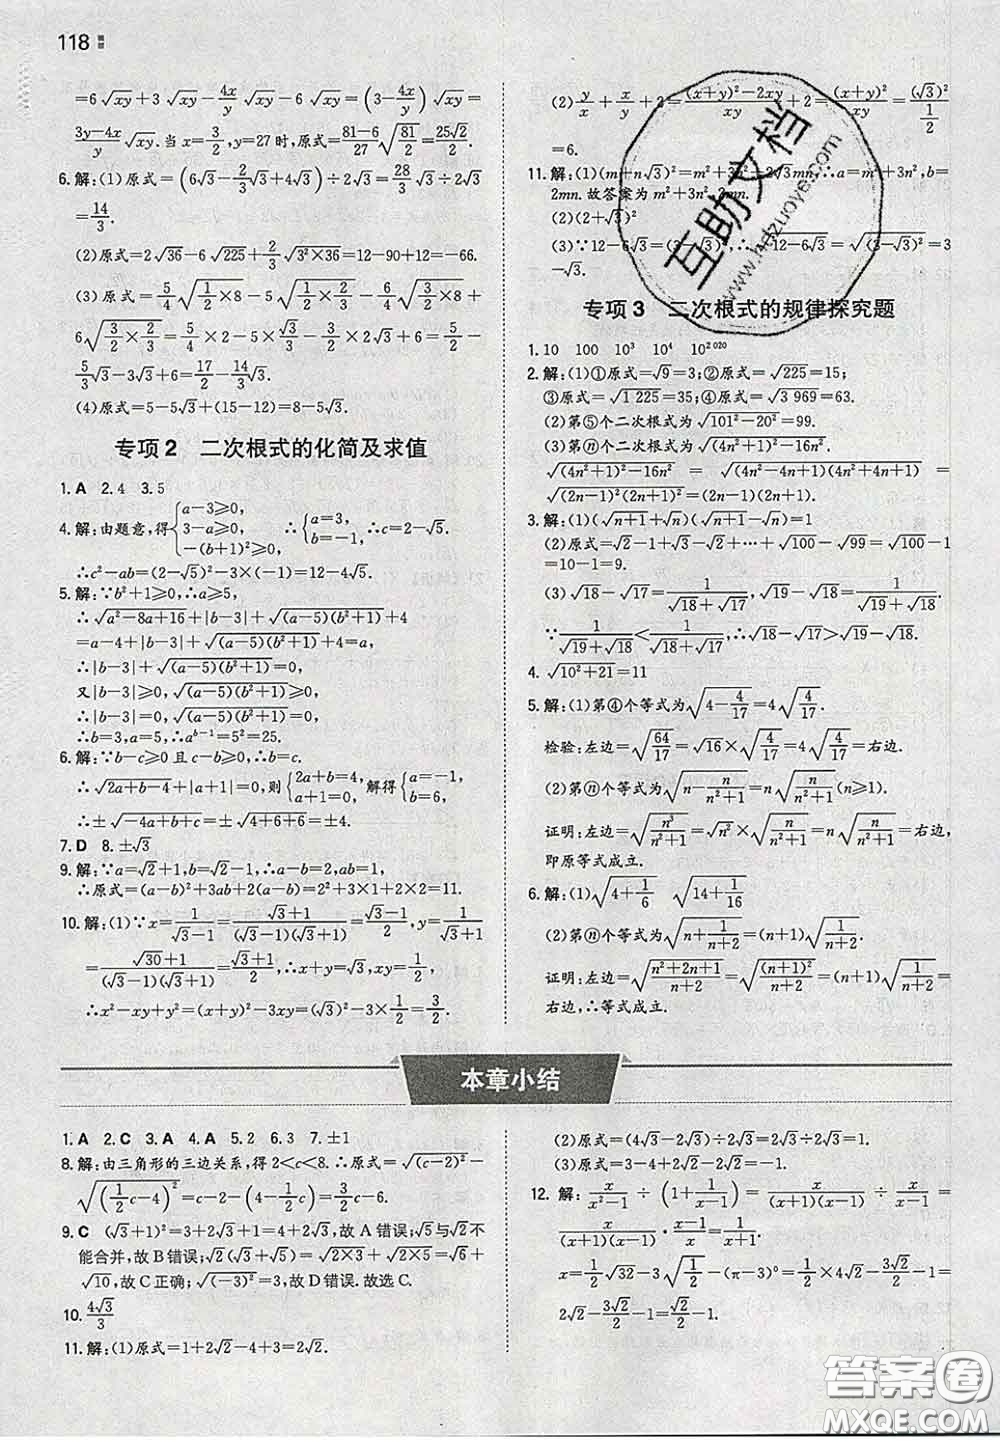 118
=6√xy+3√xy-4x/y√xy-6√xy=(3-4x/y)√xy=
(3y-4x)/y √xy.当x=3/2,y=27时,原式=(81-6)/27 √(81/2)=25√2/2.
6.解:(1)原式=(6√3-2/3√3+4√3)÷2√3=28/3√3÷2√3
=14/3.
(2)原式=2√36-6√225+2/3√(3²×36)=12-90+12=-66.
(3)原式=5/4√(1/2×8)-5/4√(1/27×8)-6√(1/2×6)+
6√(1/3×3)=5/4×2-5/2×√3/9-6√3+6=5/2-
5/3√3-3√3+6=17/2-14/3√3.
(4)原式=5-5√3+(15-12)=8-5√3.
专项2 二次根式的化简及求值
1.A 2.4 3.5
4.解:由题意,得{a-3≥0, 3-a≥0, -(b+1)²≥0, ∴{a=3, b=-1, ∴c=2-√5.
∴c²-ab=(2-√5)²-3×(-1)=12-4√5.
5.解:∵b²+1≥0,∴a≥5,
∴√(a²-8a+16)+|b-3|+√((a-5)(b²+1))+4
=a-4+|b-3|+√((a-5)(b²+1))+4=a,
∴|b-3|+√((a-5)(b²+1))=0,
又|b-3|≥0,√((a-5)(b²+1))≥0,
∴|b-3|=0,√((a-5)(b²+1))=0,
∴b=3,a=5,∴a^(b-1)=5²=25.
6.解:∵b-c≥0且c-b≥0,∴b=c.
∴√(2a+b-4)+|a+1|=0,则{2a+b=4, a+1=0, 解得{a=-1, b=6,
∴±√(-4a+b+c)=±√(4+6+6)=±4.
7.D 8.±√3
9.解:∵a=√2+1,b=√2-1,∴a-b=2,ab=1,
∴原式=(a-b)²+3ab+2(a-b)=2²+3×1+2×2=11.
10.解:(1)∵x=1/(√3-1)=(√3+1)/((√3-1)(√3+1))=(√3-1)/2,y=1/(√3+1)
=(√30+1)/((√3-1)(√3+1))=(√3+1)/2,∴x+y=√3,xy=1/2,
∴x²-xy+y²=(x+y)²-3xy=(√3)²-3×1/2=3/2.
(2)y/x+x/y+2=((x+y)²-2xy)/xy+2=(x+y)²/xy=(√3)²/(1/2)
=6.
11.解:(1)(m+n√3)²=m²+3n²+2√3mn,∴a=m²+3n²,b=
2mn.故答案为m²+3n²,2mn.
(2)(2+√3)²
(3)∵12-6√3=(3-√3)²,∴√(12-6√3)=√((3-√3)²)=3
-√3.
专项3 二次根式的规律探究题
1.10 100 10³ 10⁴ 10²⁰²⁰
2.解:(1)①原式=√9=3;②原式=√225=15;
③原式=√1 225=35;④原式=√3 969=63.
(2)第⑤个二次根式为√(101²-20²)=99.
(3)第ⓝ个二次根式为√((4n²+1)²-16n²).
√((4n²+1)²-16n²)=√((4n²-4n+1)(4n²+4n+1))=
√((2n-1)²(2n+1)²)=(2n-1)(2n+1).
3.解:(1)(√(n+1)+√n)(√(n+1)-√n)=1
(2)原式=√2-1+√3-√2+…+√100-√99=√100-1
=10-1=9.
(3)√18-√17=1/(√18+√17),√19-√18=1/(√19+√18).
∵1/(√19+√18)<1/(√18+√17),∴√18-√17>√19-√18.
4.√(10²+21)=11
5.解:(1)第④个等式为√(4-4/17)=4√(4/17).
检验:左边=√(64/17)=√16×√(4/17)=4√(4/17)=右边.
(2)第ⓝ个等式为√(n-n/(n²+1))=n√(n/(n²+1)).
证明:左边=√(n³/(n²+1))=√n²×√(n/(n²+1))=n√(n/(n²+1))=右边,
即原等式成立.
6.解:(1)√(4+1/6) √(14+1/16)
(2)第ⓝ个等式为√(n+1/(n+2))=(n+1)√(1/(n+2)).
证明:左边=√((n²+2n+1)/(n+2))=√((n+1)²/(n+2))=(n+1)√(1/(n+2))=
右边,∴等式成立.
本章小结
1.A 2.C 3.A 4.A 5.2 6.3 7.±1
8.解:由三角形的三边关系,得2<c<8.∴原式=√((c-2)²)-
√((1/2c-4)²)=c-2-(4-1/2c)=3/2c-6.
9.C (√3+1)²=3+2√3+1=4+2√3,故A错误;√5与√2不
能合并,故B错误;√2(√3+√5)=√(2×3)+√(2×5)=√6+
√10,故C正确;√((-3)²)=3,故D错误.故选C.
10.4√3/3
11.解:(1)原式=1+2√2-4+3=2√2.
(2)原式=(4√3-2√3)÷2√3=2√3÷2√3=1.
(3)原式=3-4+4√2-2√2=2√2-1.
12.解:x/(x²-1)÷(1+1/(x-1))=x/((x+1)(x-1))÷x/(x-1)=
x/((x+1)(x-1))·(x-1)/x=1/(x+1).
x=1/2√32-3√(1/2)-(π-3)⁰=1/2×4√2-3√2/2-1=
2√2-3√2/2-1=√2/2-1.
互助文档
www.hdzuoye.com
答案圈
MXQE.COM